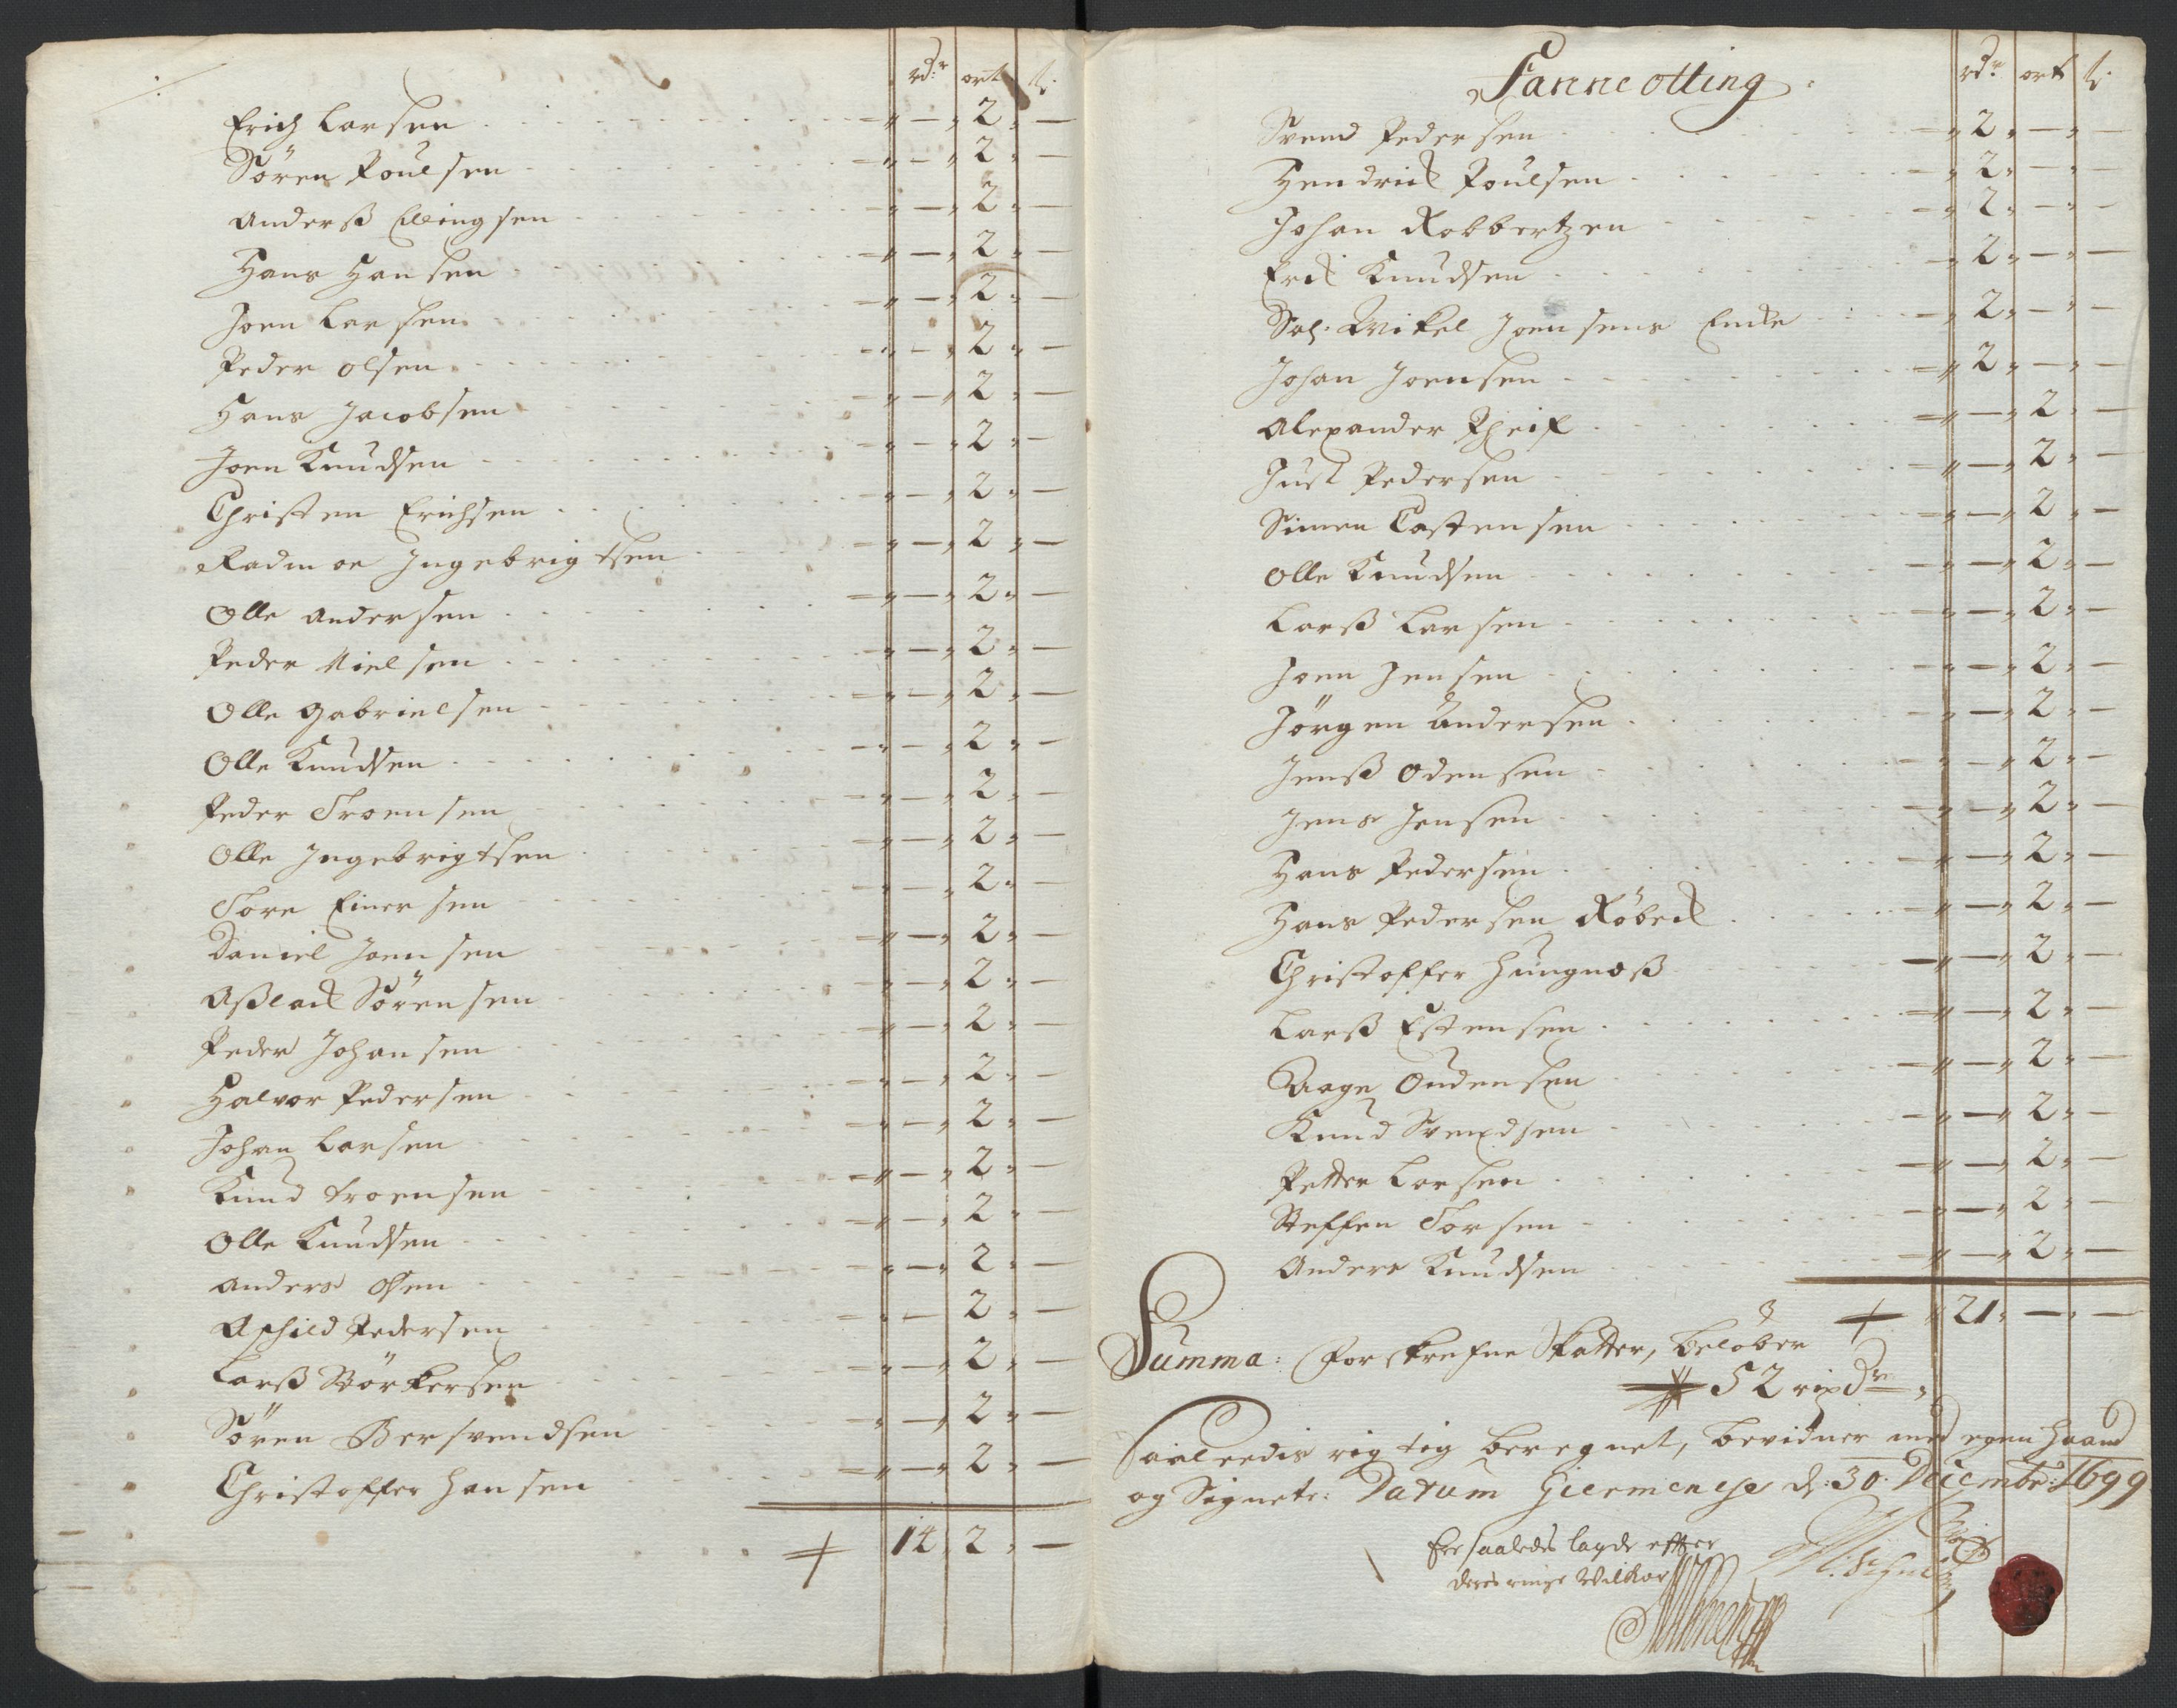 rdr ort ß
Erich Larsen - 2 -
Sören Poulsen - 2 -
Anderß Ellingsen - 2 -
Hans Hansen - 2 -
Joen Larsen - 2 -
Peder Olsen - 2 -
Hans Jacobsen - 2 -
Joen Knudsen - 2 -
Christen Erichsen - 2 -
Radmoe Ingebrigtsen - 2 -
Olle Andersen - 2 -
Peder Nielsen - 2 -
Olle Gabrielsen - 2 -
Olle Knudsen - 2 -
Peder Troensen - 2 -
Olle Ingebrigtsen - 2 -
Tore Einersen - 2 -
Daniel Joensen - 2 -
Aßlack Sörensen - 2 -
Peder Johansen - 2 -
Halvor Pedersen - 2 -
Johan Larsen - 2 -
Knud Troensen - 2 -
Olle Knudsen - 2 -
Anders Olsen - 2 -
Pedersen - 2 -
Larß Störkersen - 2 -
Sören Bersvendsen - 2 -
Christoffer Hansen - 2 -
14 2 -
Fanne otting rdr ort ß
Svend Pedersen 2 - -
Hendrick Poulsen 2 - -
Johan Robbertzen 2 - -
Erik Knudsen 2 - -
Sal: Mikel Joensens Encke 2 - -
Johan Joensen 2 - -
Alexander - 2 -
Just Pedersen - 2 -
Simen Castensen - 2 -
Olle Knudsen - 2 -
Larß Larsen - 2 -
Joen Jensen - 2 -
Jörgen Andersen - 2 -
Jenß Odensen - 2 -
Jens Jensen - 2 -
Hans Pedersen - 2 -
Hans Pedersen Röbeck - 2 -
Christoffer Hungnæß - 2 -
Larß Estensen - 2 -
Aage Oudensen - 2 -
Knud Svendsen - 2 -
Petter Larsen - 2 -
Steffen Torsen - 2 -
Anders Knudsen - 2 -
21 - -
Summa: Forskrefne Skatter, beløber
52 rixdr
Saaleedis rigtig beregnet, bevidner med egen haand
og Signete: Datum Giermenes d: 30. Decembr: 1699
Ere saaledes lagde efter
deres ringe Vilkor